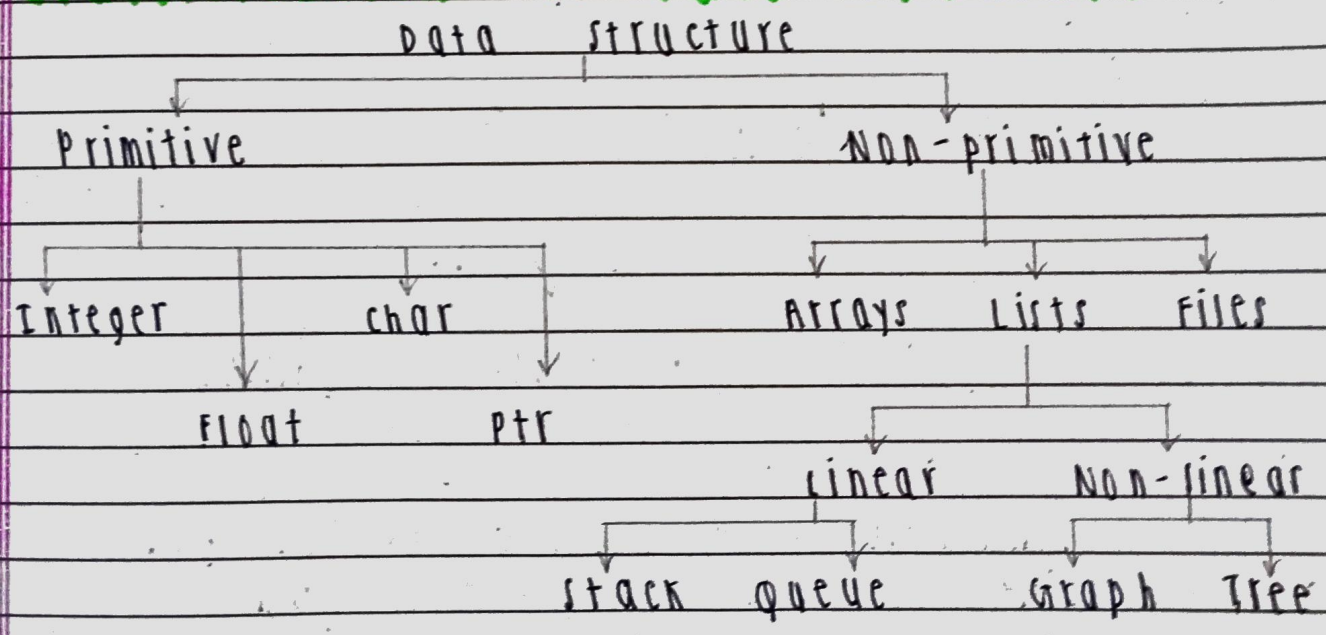 Data Structure
Primitive Non-primitive
Integer Char Arrays Lists Files
Float Ptr
Linear Non-linear
Stack Queue Graph Tree